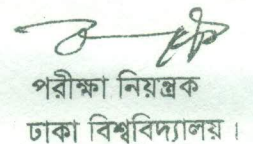 পরীক্ষা নিয়ন্ত্রক
ঢাকা বিশ্ববিদ্যালয়।